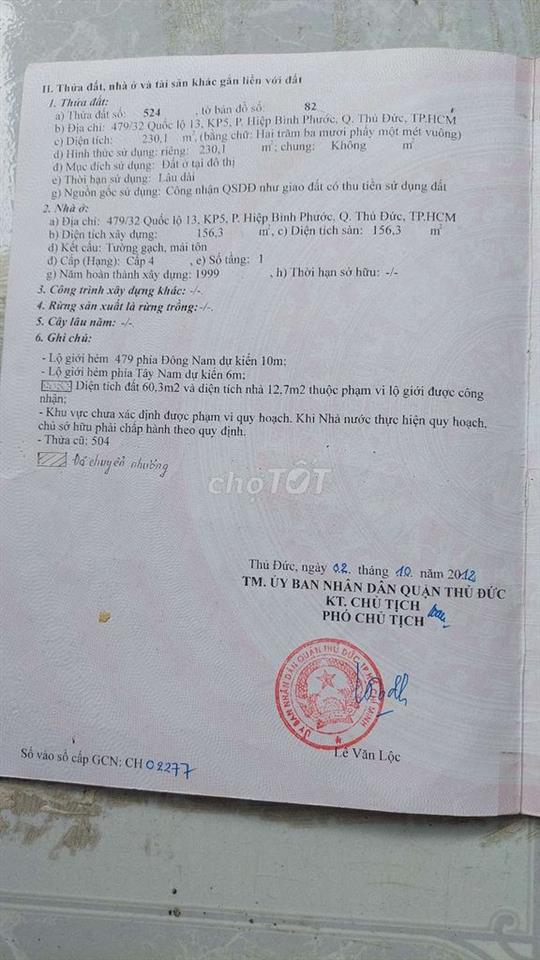 II. Thửa đất, nhà ở và tài sản khác gắn liền với đất
1. Thửa đất:
a) Thửa đất số: 524 , tờ bản đồ số: 82
b) Địa chỉ: 479/32 Quốc lộ 13, KP5, P. Hiệp Bình Phước, Q. Thủ Đức, TP.HCM
c) Diện tích: 230,1 m², (bằng chữ: Hai trăm ba mươi phẩy một mét vuông)
d) Hình thức sử dụng: riêng: 230,1 m²; chung: Không m²
đ) Mục đích sử dụng: Đất ở tại đô thị
e) Thời hạn sử dụng: Lâu dài
g) Nguồn gốc sử dụng: Công nhận QSDĐ như giao đất có thu tiền sử dụng đất
2. Nhà ở:
a) Địa chỉ: 479/32 Quốc lộ 13, KP5, P. Hiệp Bình Phước, Q. Thủ Đức, TP.HCM
b) Diện tích xây dựng: 156,3 m², c) Diện tích sàn: 156,3 m²
d) Kết cấu: Tường gạch, mái tôn
đ) Cấp (Hạng): Cấp 4 , e) Số tầng: 1
g) Năm hoàn thành xây dựng: 1999 , h) Thời hạn sở hữu: -/-
3. Công trình xây dựng khác: -/-.
4. Rừng sản xuất là rừng trồng:-/-.
5. Cây lâu năm: -/-.
6. Ghi chú:
- Lộ giới hẻm 479 phía Đông Nam dự kiến 10m;
- Lộ giới hẻm phía Tây Nam dự kiến 6m;
Diện tích đất 60,3m2 và diện tích nhà 12,7m2 thuộc phạm vi lộ giới được công
nhận;
- Khu vực chưa xác định được phạm vi quy hoạch. Khi Nhà nước thực hiện quy hoạch,
chủ sở hữu phải chấp hành theo quy định.
- Thửa cũ: 504
Đã chuyển nhượng
chợTỐT
Thủ Đức, ngày 02. tháng 10. năm 2012
TM. ỦY BAN NHÂN DÂN QUẬN THỦ ĐỨC
KT. CHỦ TỊCH
PHÓ CHỦ TỊCH
ỦY BAN NHÂN DÂN QUẬN THỦ ĐỨC T.P HỒ CHÍ MINH
Lê Văn Lộc
Số vào sổ cấp GCN: CH 02277